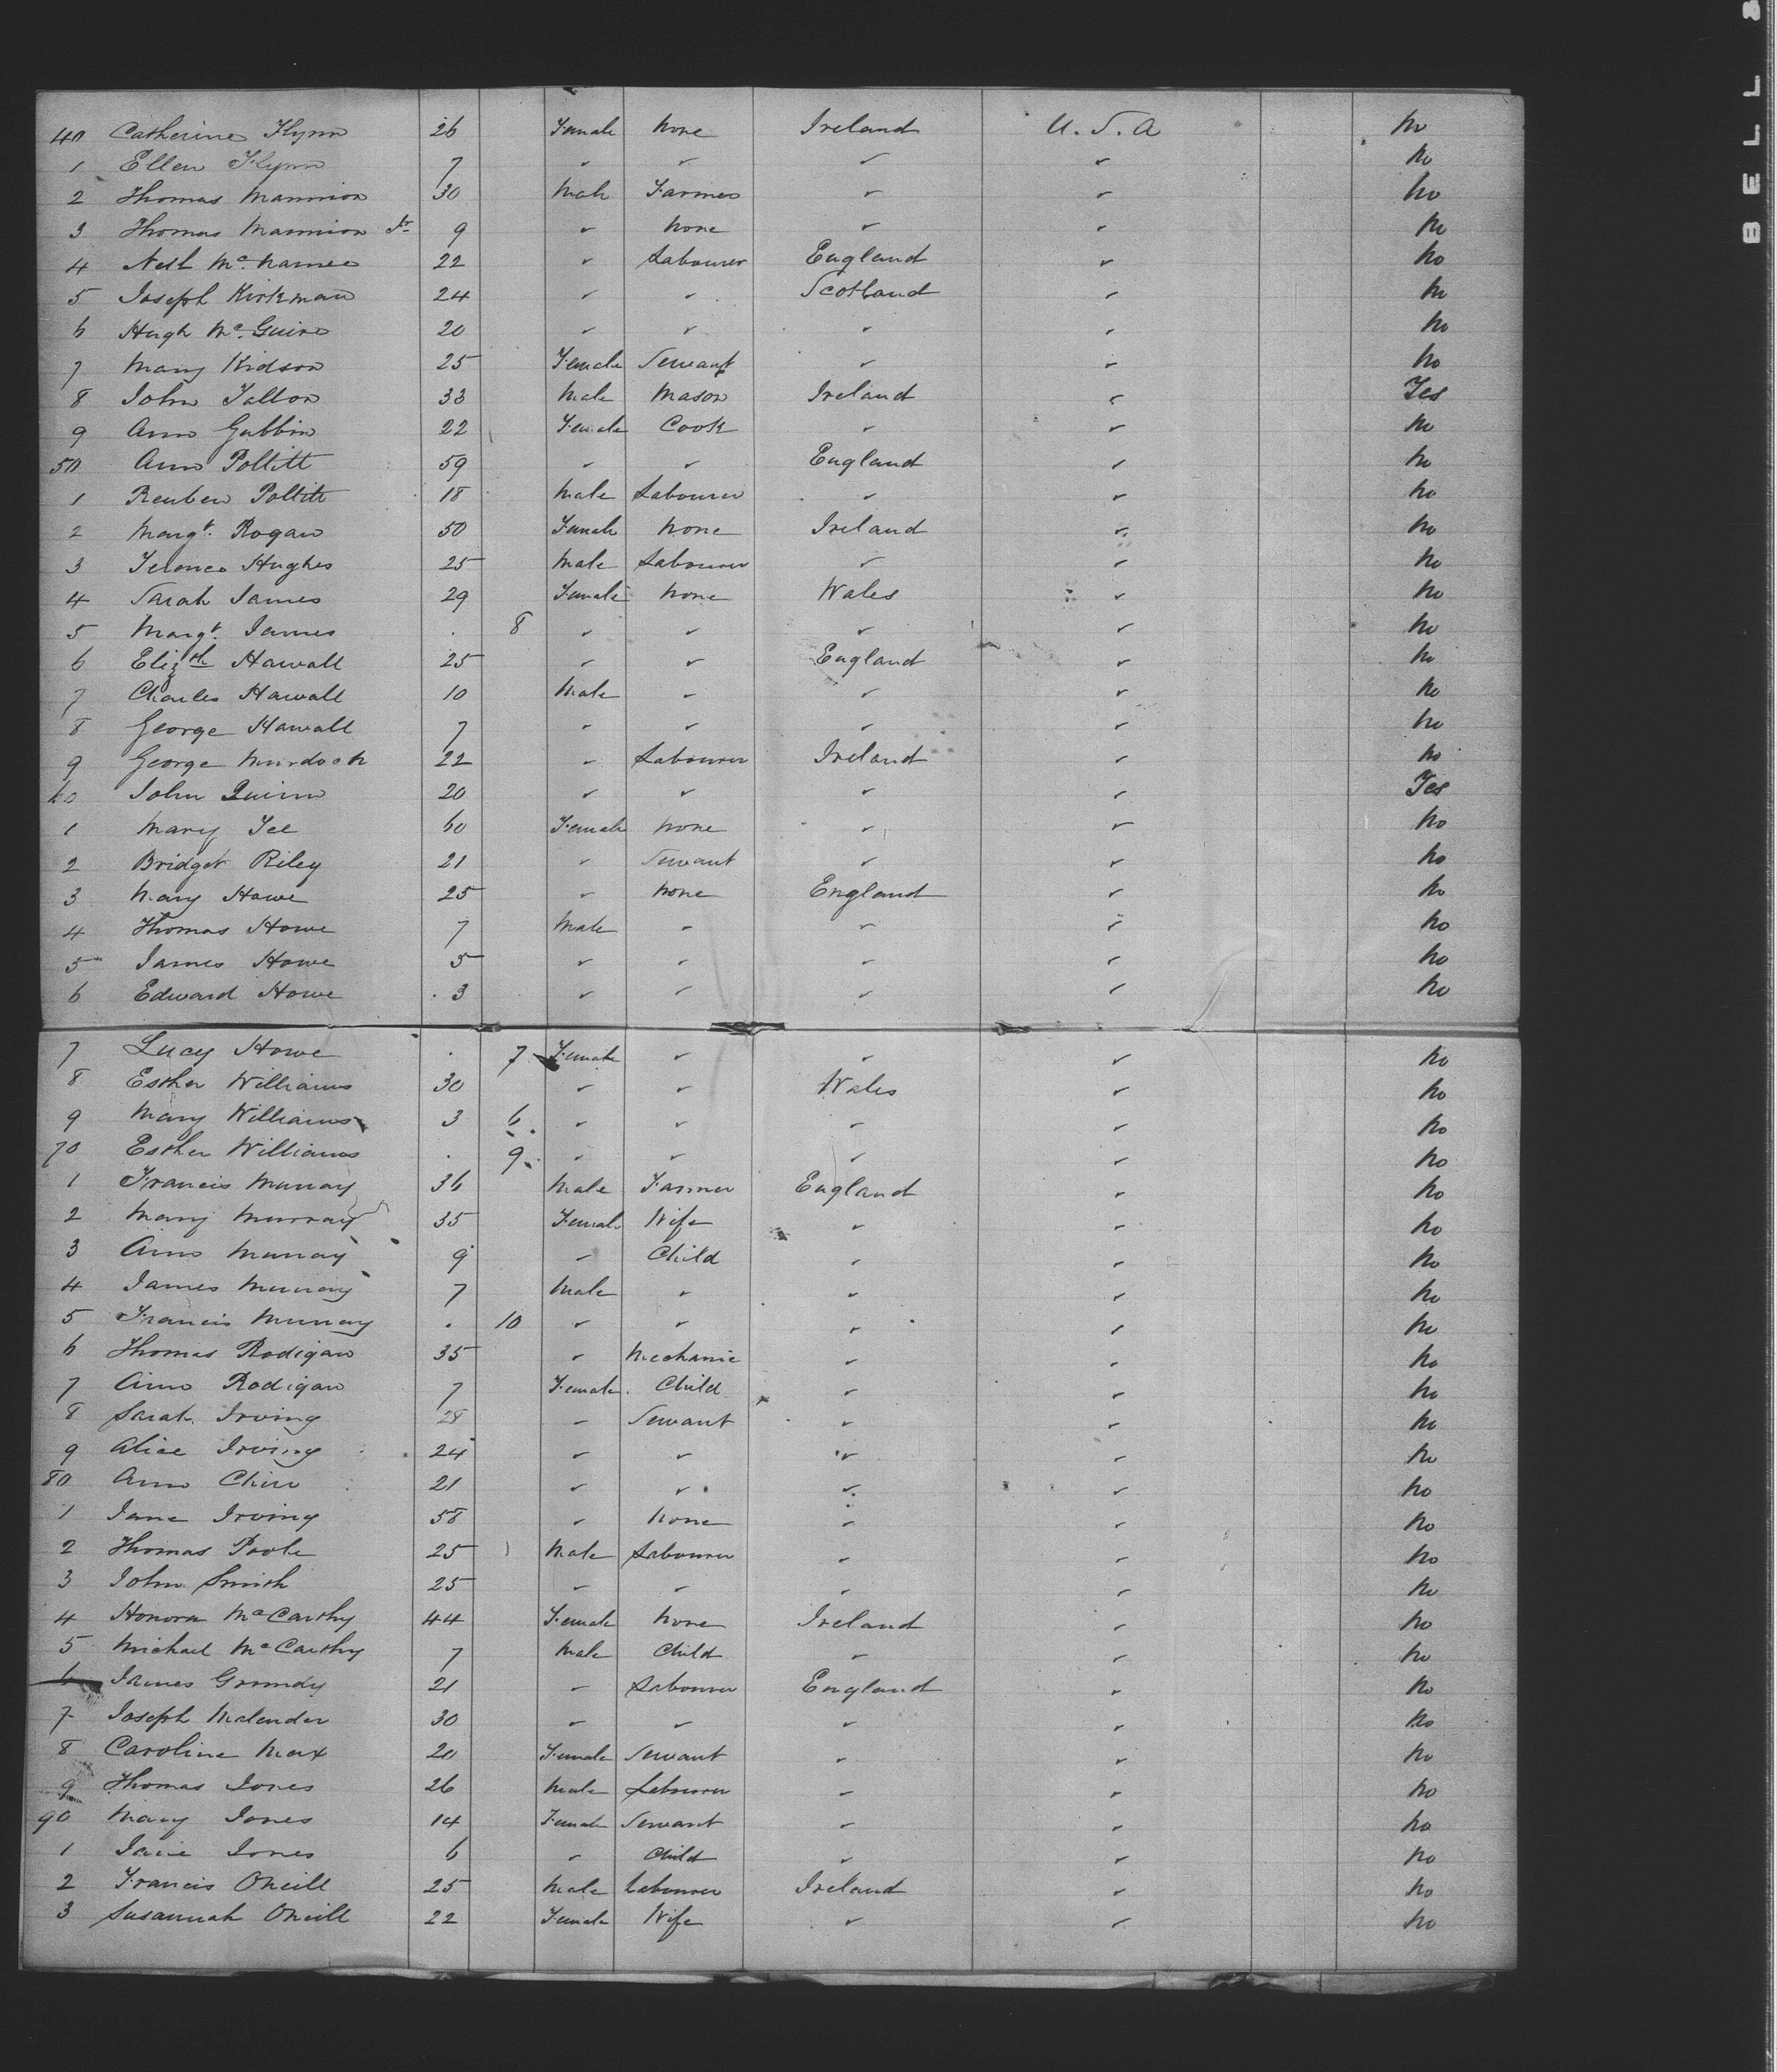 40 Catherine Flynn 26 Female None Ireland U.S.A No
1 Ellen Flynn 7 " " " " No
2 Thomas Mannion 30 Male Farmer " " No
3 Thomas Mannion Jr 9 " None " " No
4 Neil McNamee 22 " Labourer England " No
5 Joseph Kirkman 24 " " Scotland " No
6 Hugh McGuire 20 " " " " No
7 Mary Kidson 25 Female Servant " " No
8 John Talbon 33 Male Mason Ireland " Yes
9 Ann Gubbin 22 Female Cook " " No
50 Ann Pollitt 59 " " England " No
1 Reuben Pollitt 18 Male Labourer " " No
2 Margt. Rogan 50 Female None Ireland " No
3 Terence Hughes 25 Male Labourer " " No
4 Sarah James 29 Female None Wales " No
5 Margt. James . 8 " " " " No
6 Elizth Hawall 25 " " England " No
7 Charles Hawall 10 Male " " " No
8 George Hawall 7 " " " " No
9 George Murdoch 22 " Labourer Ireland " No
60 John Quinn 20 " " " " Yes
1 Mary Tee 60 Female None " " No
2 Bridget Riley 21 " Servant " " No
3 Mary Howe 25 " None England " No
4 Thomas Howe 7 Male " " " No
5 James Howe 5 " " " " No
6 Edward Howe 3 " " " " No
7 Lucy Howe . 7 Female " " " No
8 Esther Williams 30 " " Wales " No
9 Mary Williams 3 6 " " " " No
70 Esther Williams . 9 " " " " No
1 Francis Murray 36 Male Farmer England " No
2 Mary Murray 35 Female Wife " " No
3 Ann Murray 9 " Child " " No
4 James Murray 7 Male " " " No
5 Francis Murray . 10 " " " " No
6 Thomas Rodigan 35 " Mechanic " " No
7 Ann Rodigan 7 Female Child " " No
8 Sarah Irving 28 " Servant " " No
9 Alice Irving 24 " " " " No
80 Ann Chew 21 " " " " No
1 Jane Irving 58 " None " " No
2 Thomas Poole 25 Male Labourer " " No
3 John Smith 25 " " " " No
4 Honora McCarthy 44 Female None Ireland " No
5 Michael McCarthy 7 Male Child " " No
6 James Grundy 21 " Labourer England " No
7 Joseph Malender 30 " " " " No
8 Caroline Max 20 Female Servant " " No
9 Thomas Jones 26 Male Labourer " " No
90 Mary Jones 14 Female Servant " " No
1 Jane Jones 6 " Child " " No
2 Francis ONeill 25 Male Labourer Ireland " No
3 Susannah ONeill 22 Female Wife " " No
BELL &